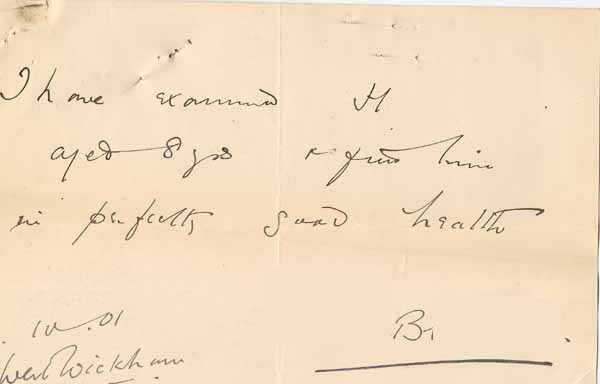 I have examined H
aged 8 yrs & find him
in perfectly good health
10.01
West Wickham
B.